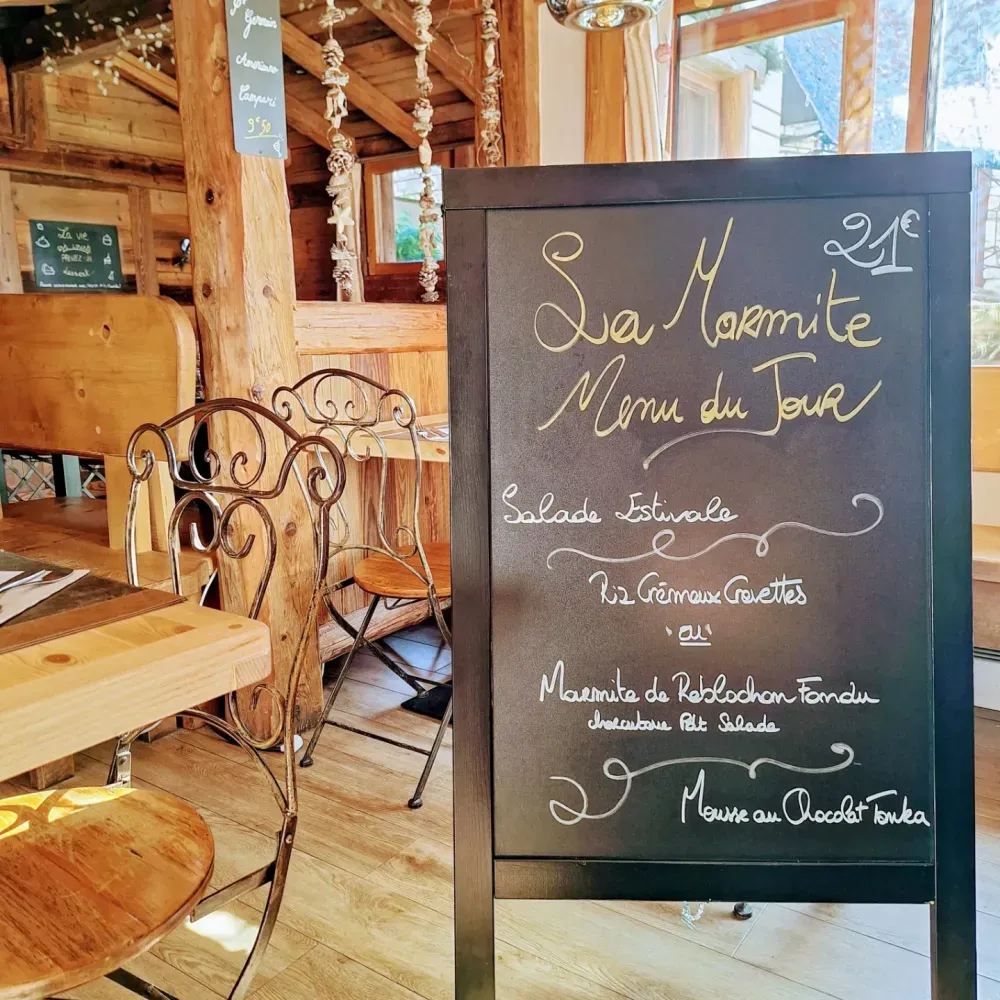 Germain
Americano
Campari
9€50
La vie
dessert
21€
La Marmite
Menu du Jour
Salade Estivale
Riz Crémeux Crevettes
ou
Marmite de Reblochon Fondu
charcuterie Pdt Salade
Mousse au Chocolat Tonka